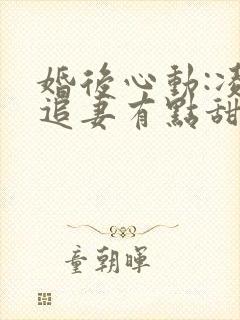 婚後心動:凌
追妻有點甜
童朝暉